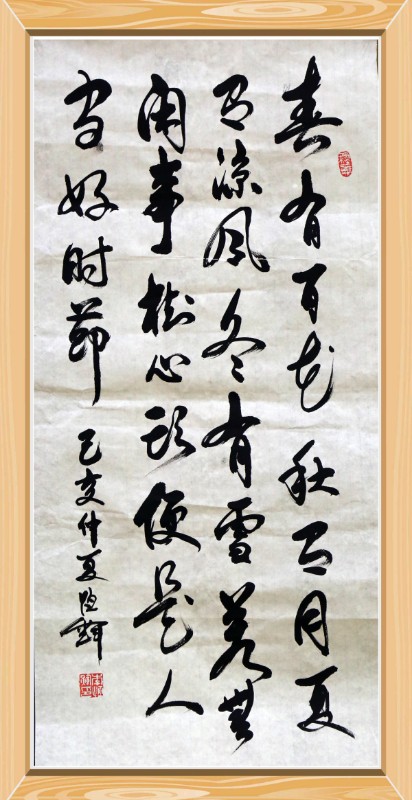 春有百花秋有月夏
有涼风冬有雪若無
闲事挂心头便是人
间好时節
己亥仲夏